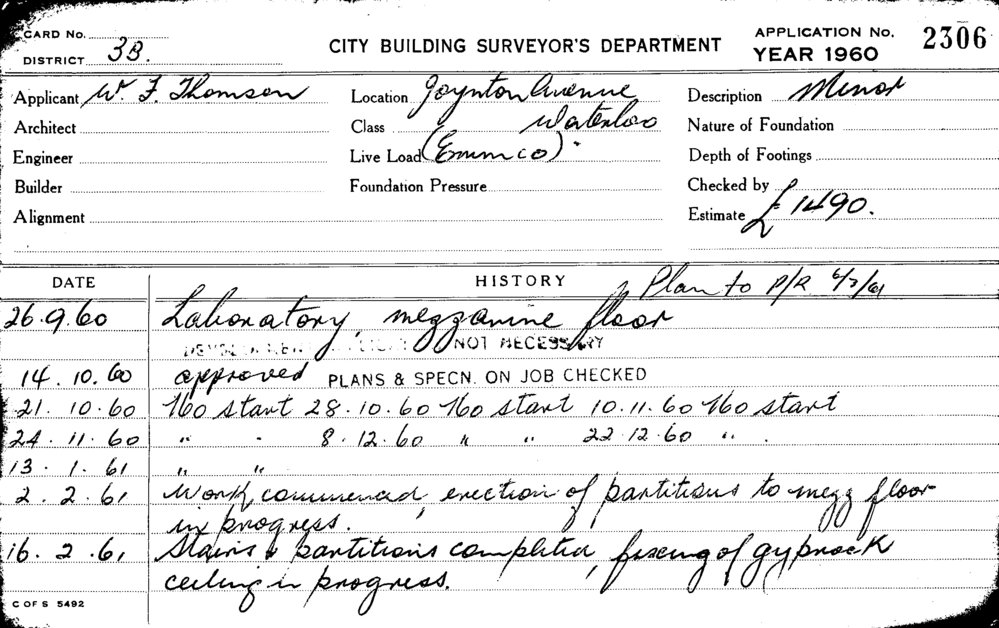 CARD No.
DISTRICT 3B.
CITY BUILDING SURVEYOR'S DEPARTMENT
APPLICATION No. 2306
YEAR 1960
Applicant W. F. Thomson
Location Joynton Avenue
Description Minor
Architect
Class Waterloo
Nature of Foundation
Engineer
Live Load (Emmco).
Depth of Footings
Builder
Foundation Pressure
Checked by
Alignment
Estimate £1490.
DATE HISTORY Plan to P/R 6/7/61
26.9.60 Laboratory, mezzanine floor
NOT NECESSARY
14.10.60 approved PLANS & SPECN. ON JOB CHECKED
21.10.60 No start 28.10.60 No start 10.11.60 No start
24.11.60 " " 8.12.60 " " 22.12.60 " .
13.1.61 " "
2.2.61 Work commenced, erection of partitions to mezz floor
in progress.
16.2.61 Stairs & partitions completed, fixing of gyprock
ceiling in progress.
C OF S 5492